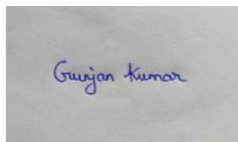 Gunjan Kumar